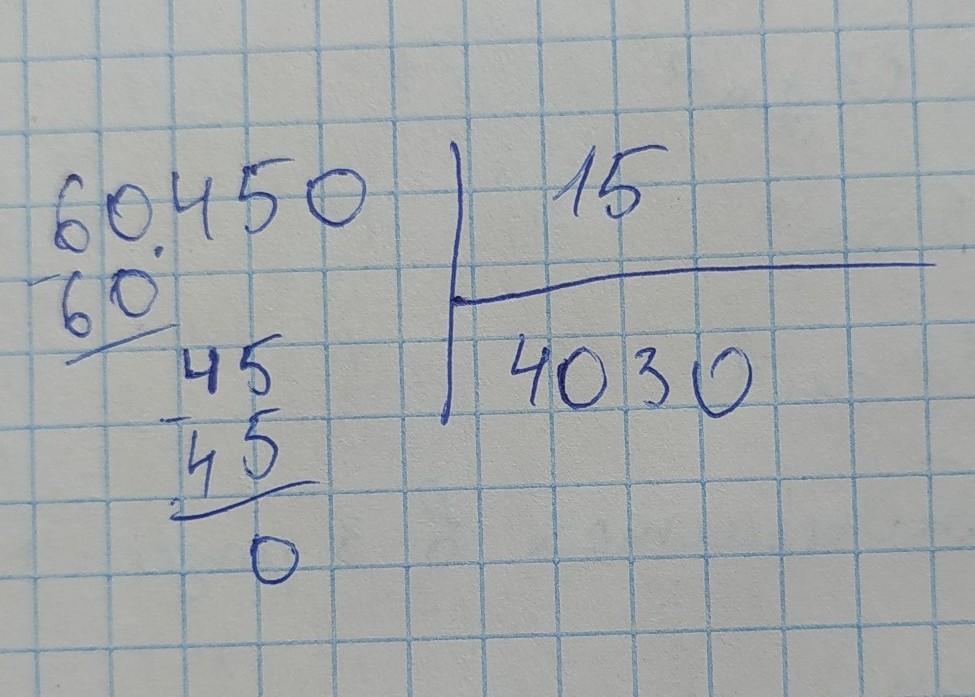 60.450 15
-60 4030
45
-45
0